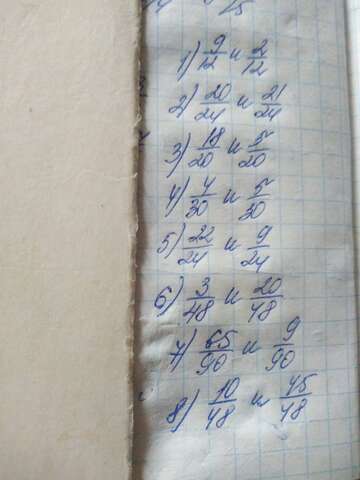 1) 9/12 и 2/12
2) 20/24 и 21/24
3) 18/20 и 5/20
4) 4/30 и 5/30
5) 22/24 и 9/24
6) 3/48 и 20/48
7) 65/90 и 9/90
8) 10/48 и 45/48